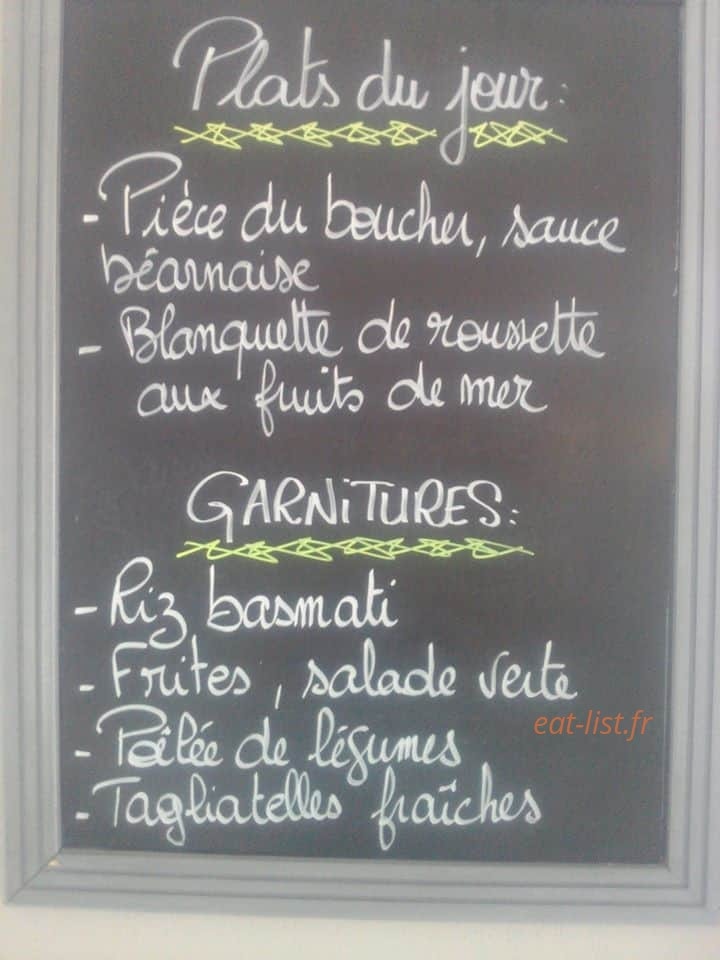 Plats du jour:
- Pièce du boucher, sauce
béarnaise
- Blanquette de roussette
aux fruits de mer
GARNiTURES:
- Riz basmati
- Frites, salade verte
eat-list.fr
- Poêlée de légumes
- Tagliatelles fraîches